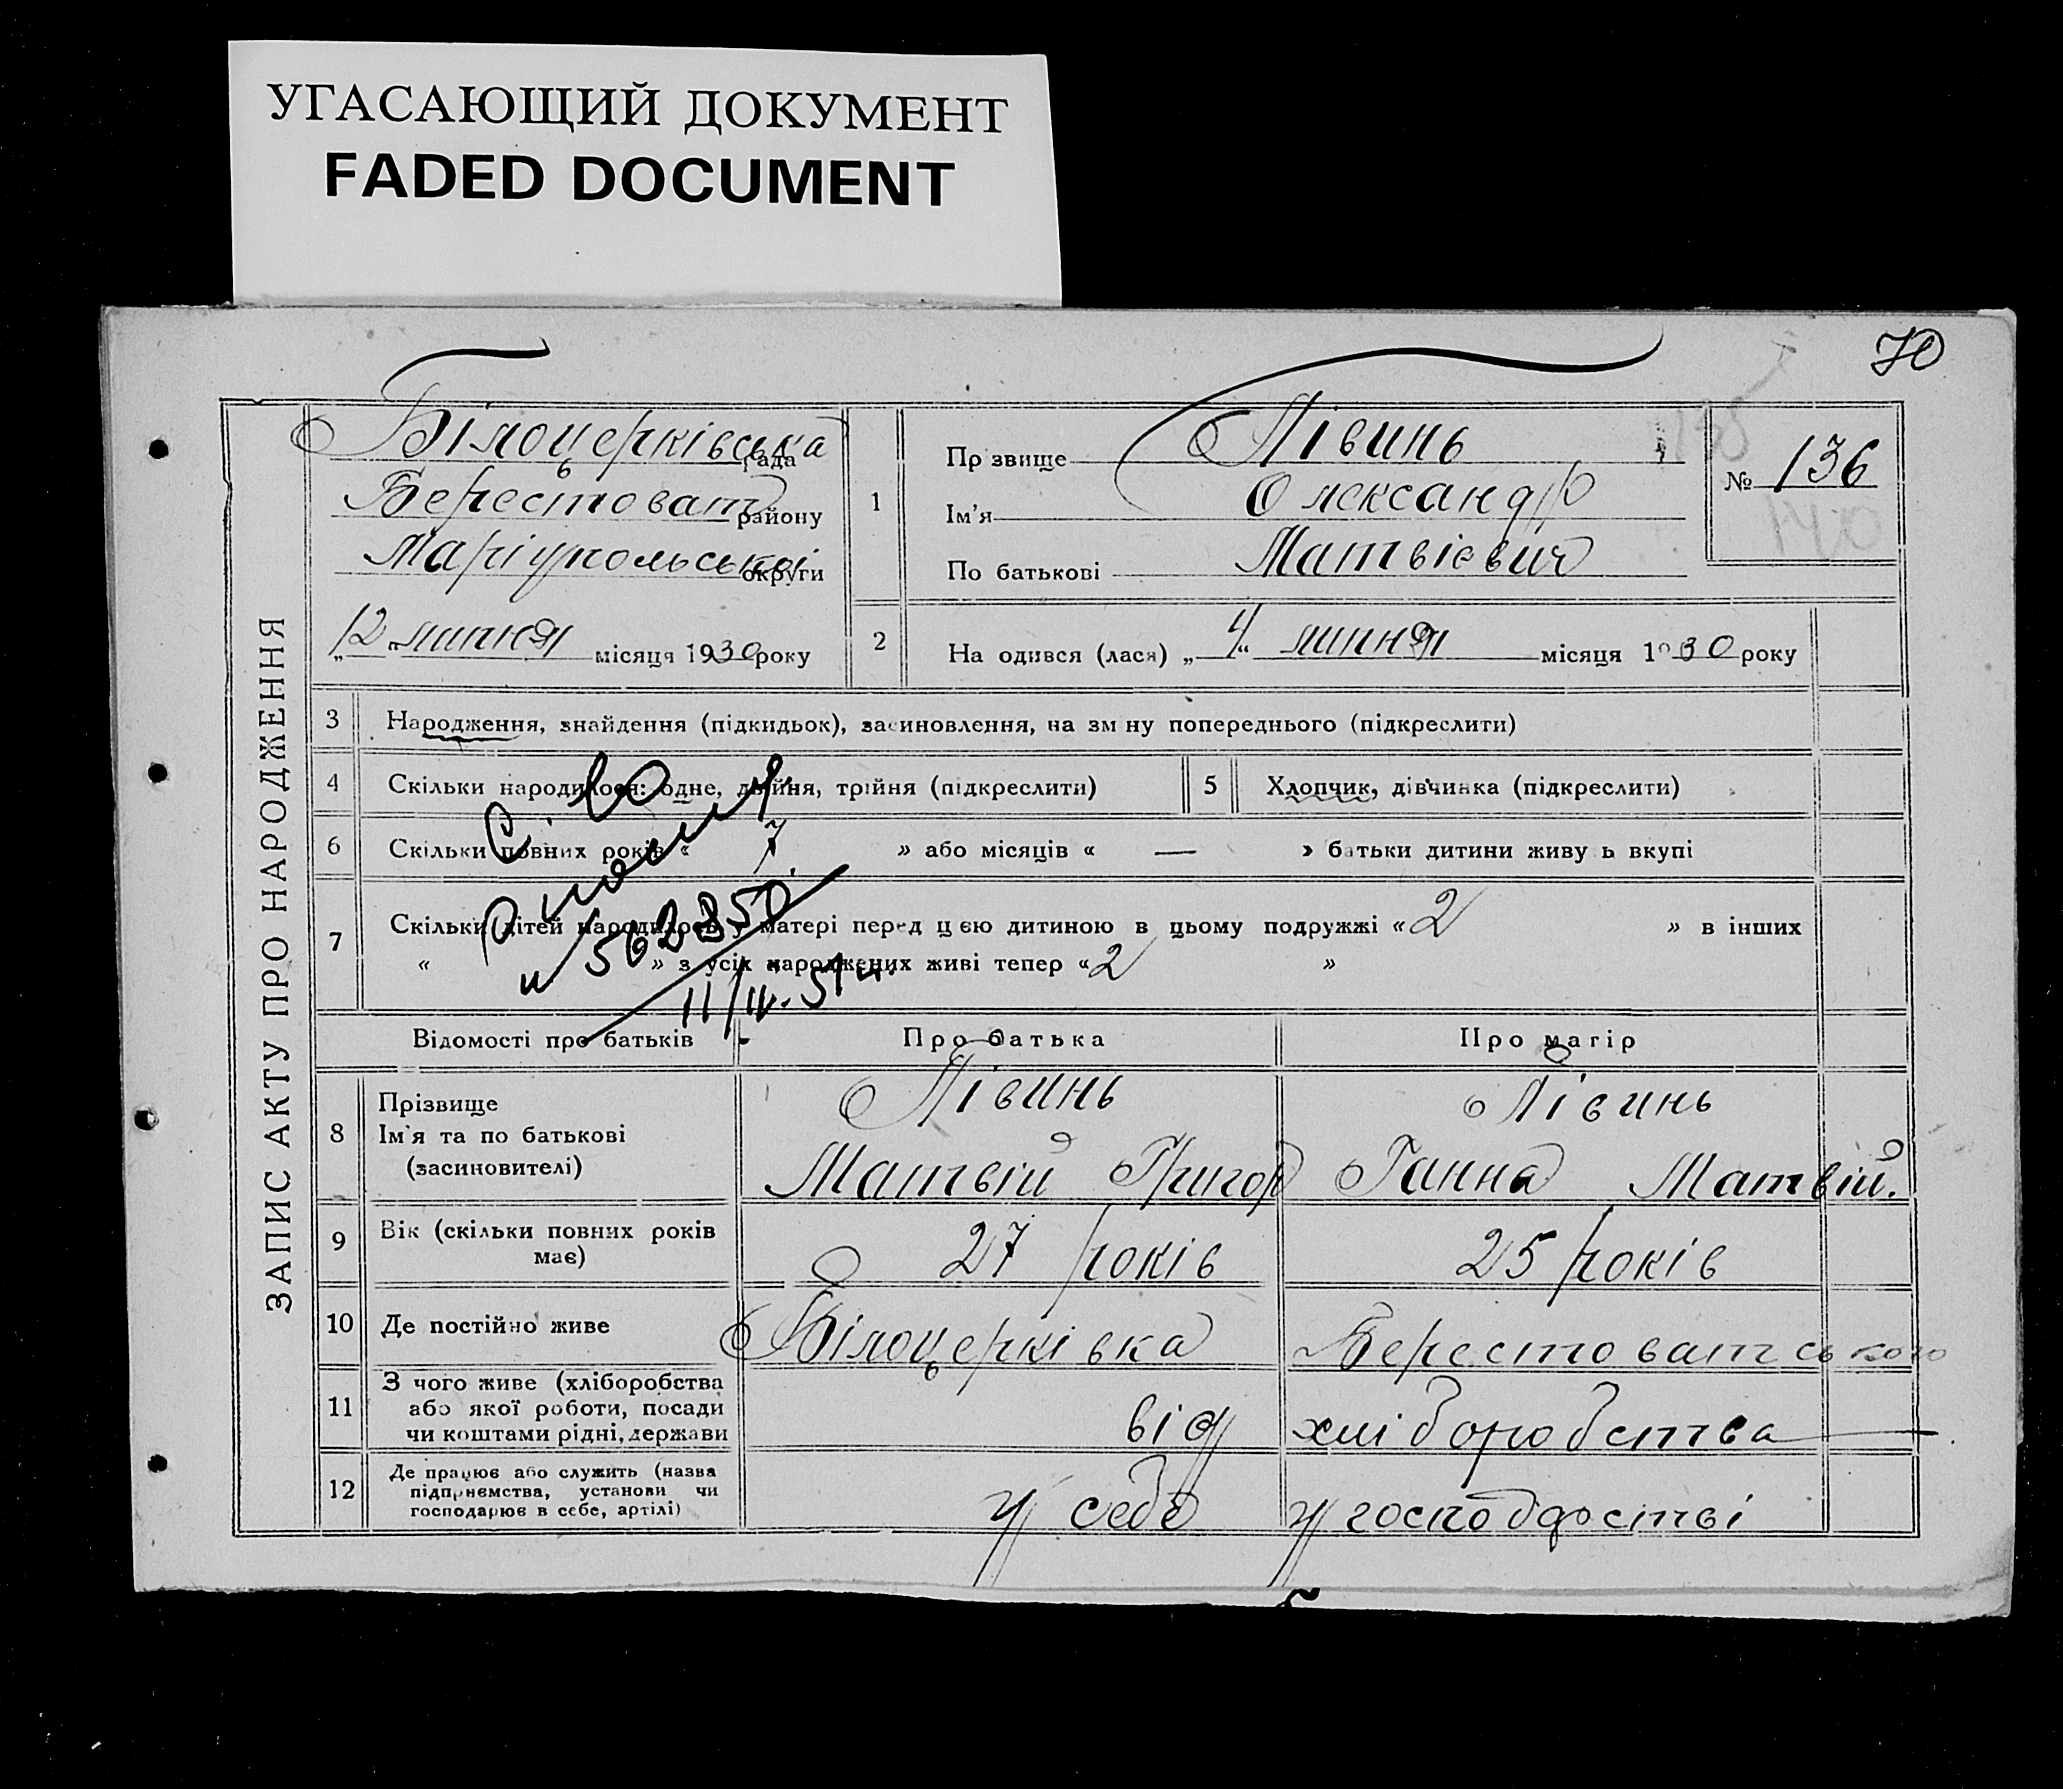 УГАСАЮЩИЙ ДОКУМЕНТ
FADED DOCUMENT
70
ЗАПИС АКТУ ПРО НАРОДЖЕННЯ
Білоцерківська рада
Берестоват району
Маріупольської округи
„12“ липня місяця 1930 року
1
Пр звище Півинь
Ім’я Олександр
По батькові Матвієвич
№ 136
140
2
На одився (лася) „4“ липня місяця 1930 року
3 Народження, знайдення (підкидьок), засиновлення, на зм ну попереднього (підкреслити)
4 Скільки народилося: одне, двійня, трійня (підкреслити)
5 Хлопчик, дівчинка (підкреслити)
6 Скільки повних років « 7 » або місяців « — » батьки дитини живу ь вкупі
7 Скільки дітей народилось у матері перед цією дитиною в цьому подружжі « 2 » в інших
« » з усіх народжених живі тепер « 2 »
562850
Відомості про батьків
Про батька
Про матір
8 Прізвище
Ім’я та по батькові
(засиновителі)
Півинь
Матвій Григор
Півинь
Ганна Матвій.
9 Вік (скільки повних років
має)
27 років
25 років
10 Де постійно живе
Білоцерківка
Берестоватського
11 З чого живе (хліборобства
або якої роботи, посади
чи коштами рідні, держави
від хліборобства
12 Де працює або служить (назва
підприємства, установи чи
господарює в себе, артілі)
у себе у господарстві